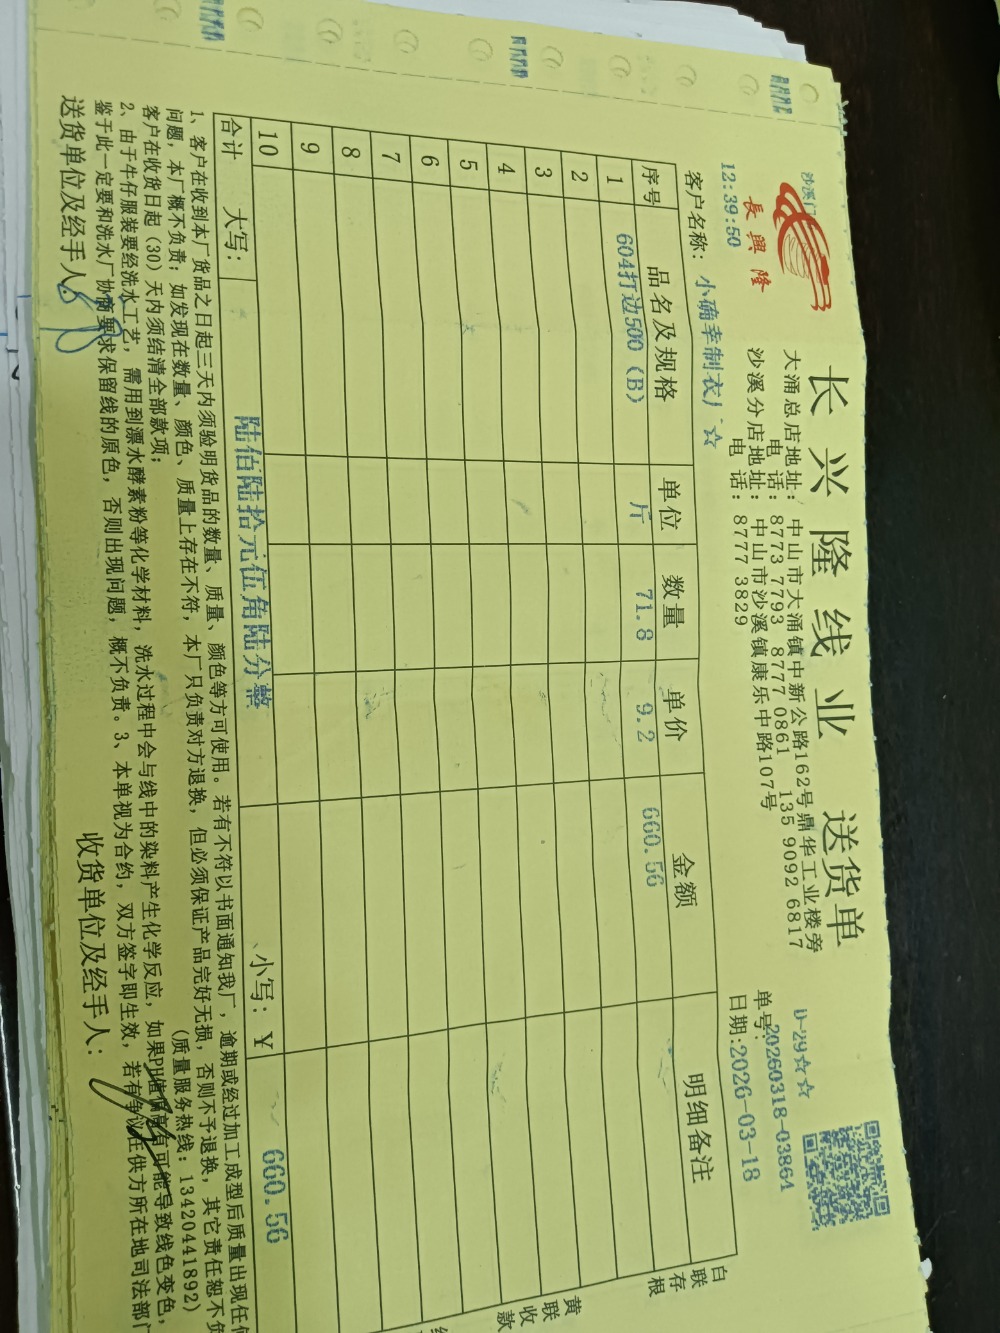 長興隆
长兴隆线业 送货单
大涌总店地址：中山市大涌镇中新公路162号鼎华工业楼旁
电话：8773 7793 8777 0861 135 9092 6817
沙溪分店地址：中山市沙溪镇康乐中路107号
电话：8777 3829
D-29☆☆
单号：20260318-03864
12:39:50
日期：2026-03-18
客户名称：小确幸制衣厂 ☆
序号 品名及规格 单位 数量 单价 金额 明细备注
1 604打边500（B） 斤 71.8 9.2 660.56
2
3
4
5
6
7
8
9
10
合计 大写：陆佰陆拾元伍角陆分整 小写：￥ 660.56
白联存根
黄联收款
1、客户在收到本厂货品之日起三天内须验明货品的数量、质量、颜色等方可使用。若有不符以书面通知我厂，逾期或经过加工成型后质量出现任何
问题，本厂概不负责；如发现在数量、颜色、质量上存在不符，本厂只负责对方退换，但必须保证产品完好无损，否则不予退换，其它责任恕不负
客户在收货日起（30）天内须结清全部款项；（质量服务热线：13420441892）
2、由于牛仔服装要经洗水工艺，需用到漂水酵素粉等化学材料，洗水过程中会与线中的染料产生化学反应，如果PH值偏高有可能导致线色变色，
鉴于此一定要和洗水厂协商要求保留线的原色，否则出现问题，概不负责。3、本单视为合约，双方签字即生效，若有争议在供方所在地司法部门
送货单位及经手人： 收货单位及经手人：